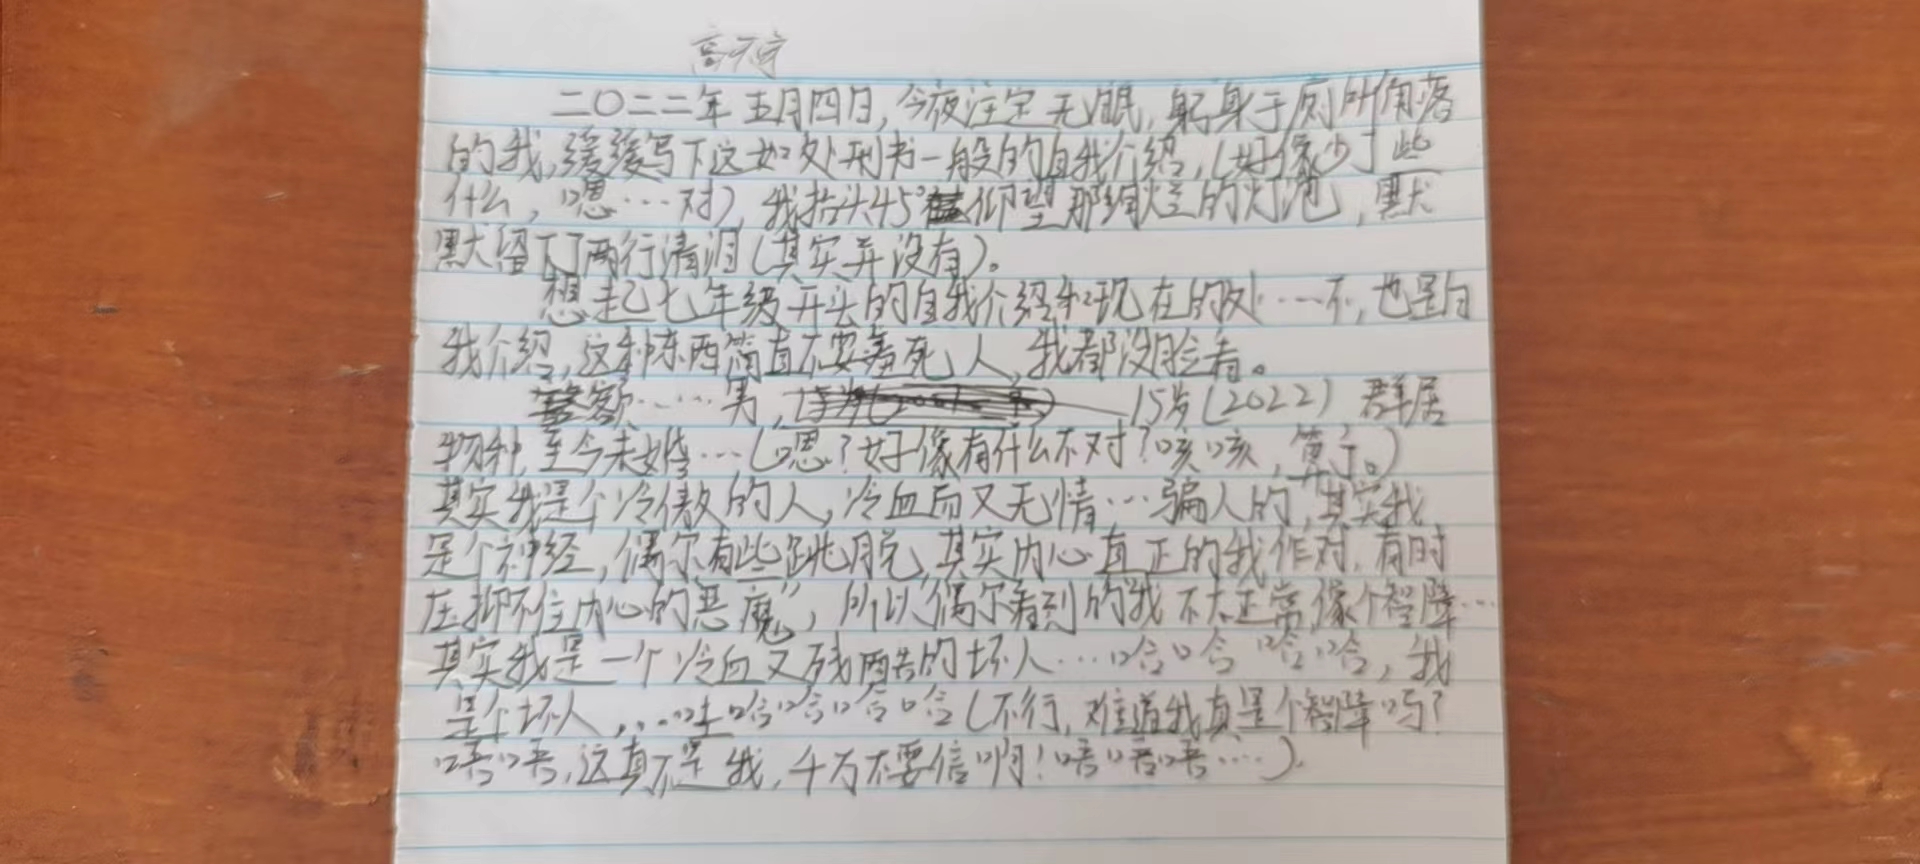 二〇二二年五月四日,今夜注定无眠,躬身于厕所角落
的我,缓缓写下这如处刑书一般的自我介绍,(好像少了些
什么,嗯…对),我抬头45°仰望那绚烂的灯泡,默
默留下了两行清泪(其实并没有)。
想起七年级开头的自我介绍和现在的处……不,也是自
我介绍,这种东西简直不要羞死人,我都没脸看。
……男, 15岁(2022) 群居
物种,至今未婚…(嗯?好像有什么不对?咳咳,算了。)
其实我是个冷傲的人,冷血而又无情…骗人的,其实我
是个神经,偶尔有些跳脱,其实内心真正的我作对,有时
压抑不住内心的恶魔",所以偶尔看到的我不大正常像个智障…
其实我是一个冷血又残酷的坏人…哈哈哈哈,我
是个坏人,…哇哈哈哈哈(不行,难道我真是个智障吗?
唔唔,这真不是我,千万不要信啊!唔唔唔……).